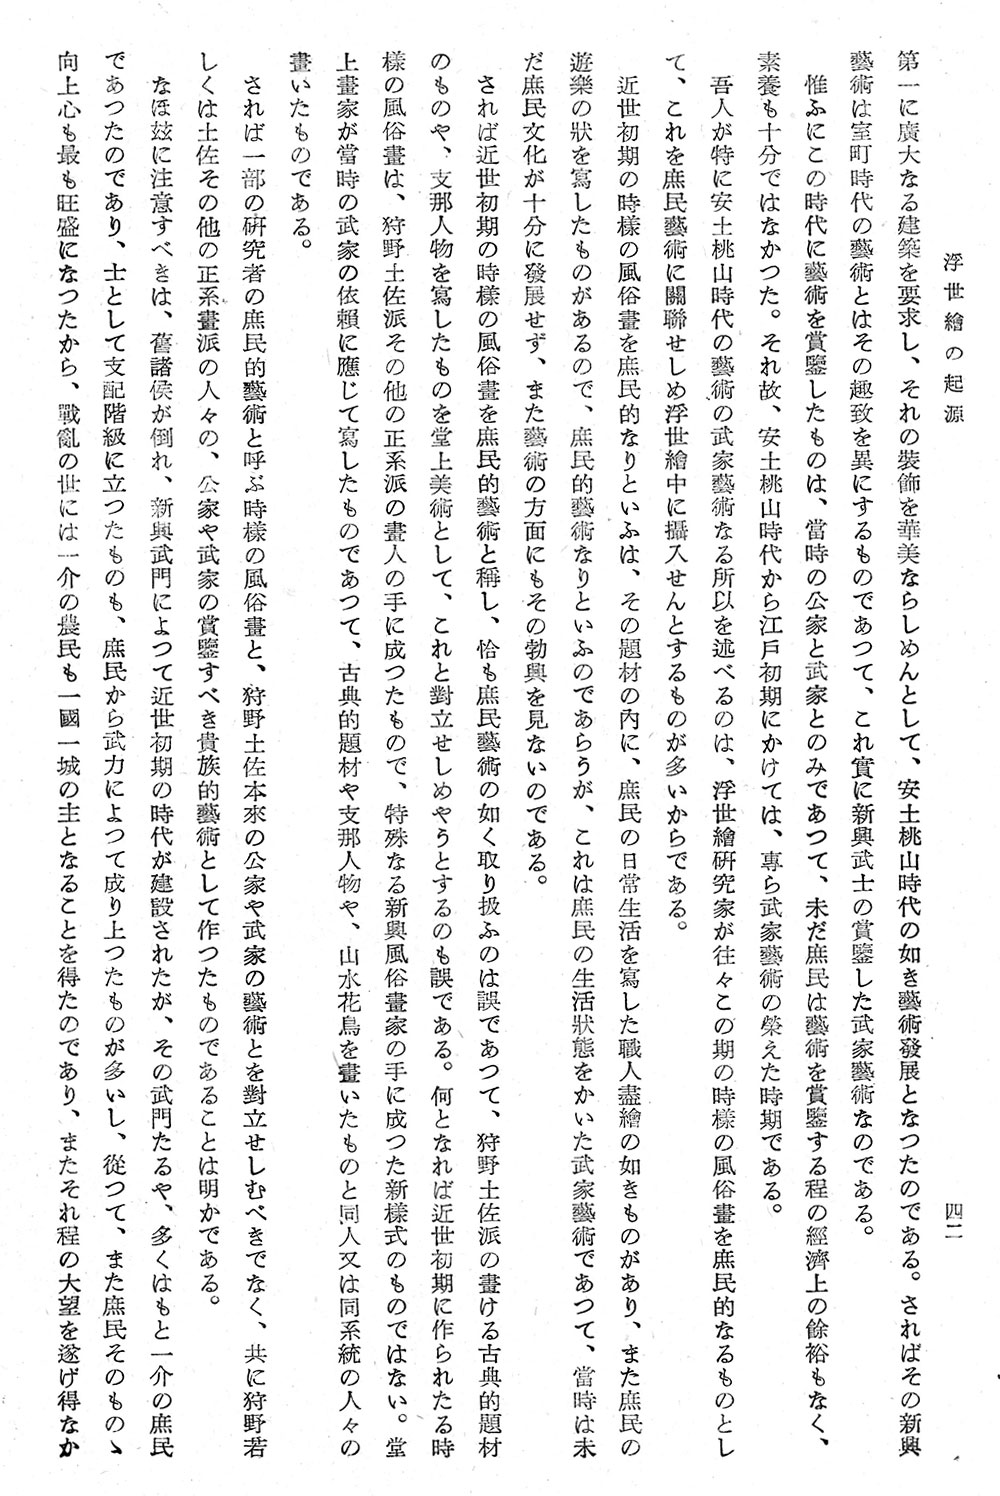 浮世繪の起源
四二
第一に廣大なる建築を要求し、それの裝飾を華美ならしめんとして、安土桃山時代の如き藝術發展となつたのである。さればその新興
藝術は室町時代の藝術とはその趣致を異にするものであつて、これ實に新興武士の賞鑒した武家藝術なのである。
惟ふにこの時代に藝術を賞鑒したものは、當時の公家と武家とのみであつて、未だ庶民は藝術を賞鑒する程の經濟上の餘裕もなく、
素養も十分ではなかつた。それ故、安土桃山時代から江戸初期にかけては、專ら武家藝術の榮えた時期である。
吾人が特に安土桃山時代の藝術の武家藝術なる所以を述べるのは、浮世繪硏究家が往々この期の時樣の風俗畫を庶民的なるものとし
て、これを庶民藝術に關聯せしめ浮世繪中に攝入せんとするものが多いからである。
近世初期の時樣の風俗畫を庶民的なりといふは、その題材の內に、庶民の日常生活を寫した職人盡繪の如きものがあり、また庶民の
遊樂の狀を寫したものがあるので、庶民的藝術なりといふのであらうが、これは庶民の生活狀態をかいた武家藝術であつて、當時は未
だ庶民文化が十分に發展せず、また藝術の方面にもその勃興を見ないのである。
されば近世初期の時樣の風俗畫を庶民的藝術と稱し、恰も庶民藝術の如く取り扱ふのは誤であつて、狩野土佐派の畫ける古典的題材
のものや、支那人物を寫したものを堂上美術として、これと對立せしめやうとするのも誤である。何となれば近世初期に作られたる時
樣の風俗畫は、狩野土佐派その他の正系派の畫人の手に成つたもので、特殊なる新興風俗畫家の手に成つた新樣式のものではない。堂
上畫家が當時の武家の依賴に應じて寫したものであつて、古典的題材や支那人物や、山水花鳥を畫いたものと同人又は同系統の人々の
畫いたものである。
されば一部の硏究者の庶民的藝術と呼ぶ時樣の風俗畫と、狩野土佐本來の公家や武家の藝術とを對立せしむべきでなく、共に狩野若
しくは土佐その他の正系畫派の人々の、公家や武家の賞鑒すべき貴族的藝術として作つたものであることは明かである。
なほ玆に注意すべきは、舊諸侯が倒れ、新興武門によつて近世初期の時代が建設されたが、その武門たるや、多くはもと一介の庶民
であつたのであり、士として支配階級に立つたものも、庶民から武力によつて成り上つたものが多いし、從つて、また庶民そのものゝ
向上心も最も旺盛になつたから、戰亂の世には一介の農民も一國一城の主となることを得たのであり、またそれ程の大望を遂げ得なか